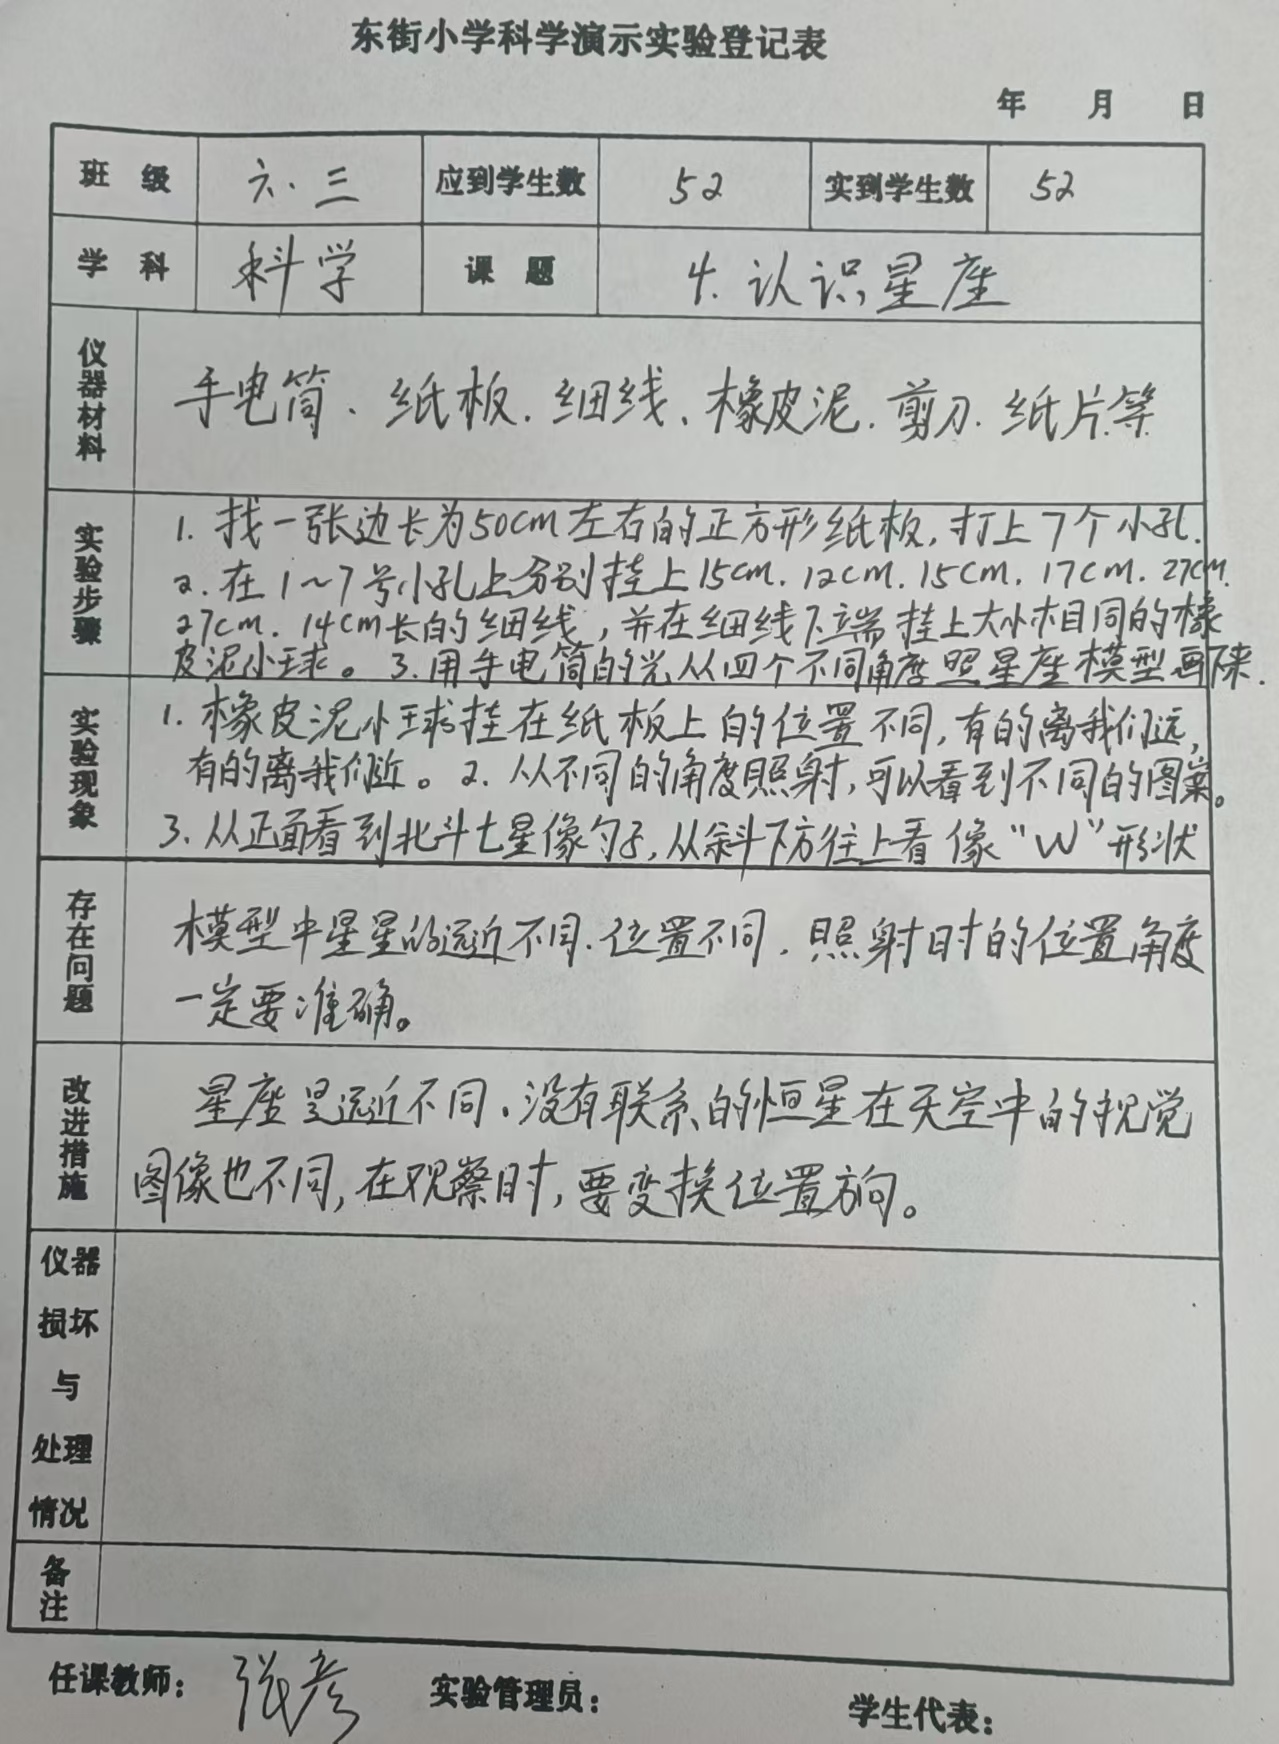 东街小学科学演示实验登记表
年 月 日
班级 六.三 应到学生数 52 实到学生数 52
学科 科学 课题 4.认识星座
仪器材料
手电筒、纸板.细线、橡皮泥.剪刀.纸片.等
实验步骤
1.找一张边长为50cm左右的正方形纸板,打上7个小孔.
2.在1~7号小孔上分别挂上15cm.12cm.15cm.17cm.27cm.
27cm.14cm长的细线,并在细线下端挂上大小相同的橡
皮泥小球。3.用手电筒的光从四个不同角度照星座模型画下来.
实验现象
1.橡皮泥小球挂在纸板上的位置不同,有的离我们远,
有的离我们近。2.从不同的角度照射,可以看到不同的图案。
3.从正面看到北斗七星像勺子,从斜下方往上看像“W”形状
存在问题
模型中星星的远近不同.位置不同.照射时的位置角度
一定要准确。
改进措施
星座是远近不同、没有联系的恒星在天空中的视觉
图像也不同,在观察时,要变换位置方向。
仪器
损坏
与
处理
情况
备注
任课教师: 张彦 实验管理员: 学生代表: